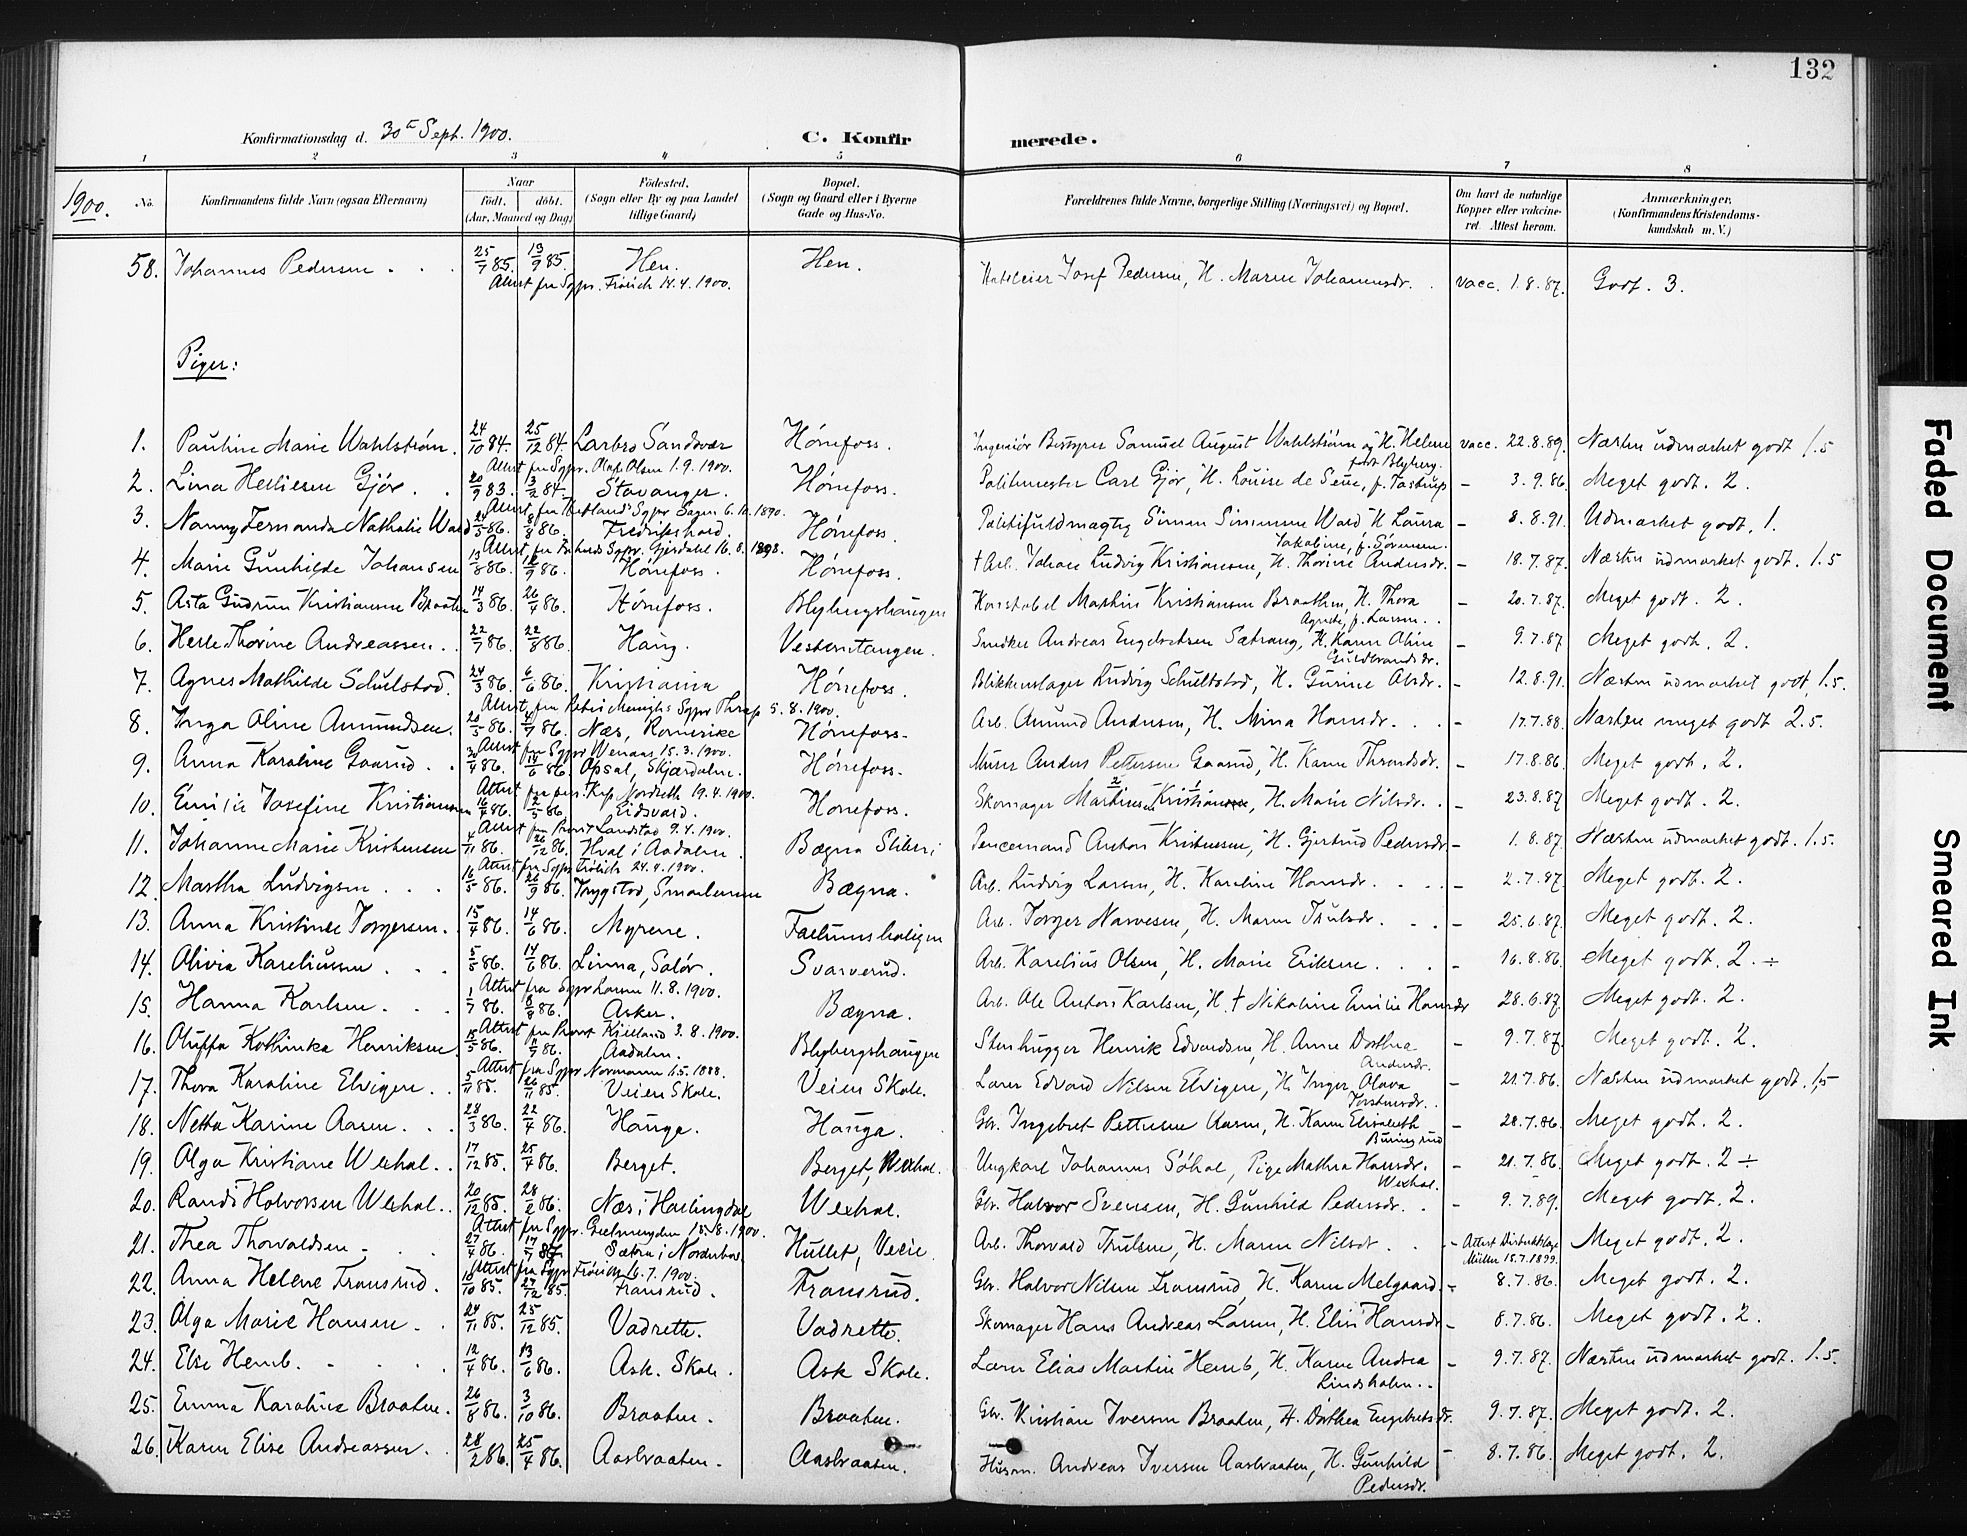 132
Konfirmationsdag d. 30te Sept. 1900. C. Konfirmerede.
1 2 3 4 5 6 7 8
1900. No. Konfirmandens fulde Navn (ogsaa Efternavn) Naar født. døbt. (Aar, Maaned og Dag) Fødested. (Sogn eller By og paa Landet tillige Gaard) Bopæl. (Sogn og Gaard eller i Byerne Gade og Hus-No. Forældrenes fulde Navne, borgerlige Stilling (Næringsvei) og Bopæl. Om havt de naturlige Kopper eller vakcineret. Attest herom. Anmærkninger. (Konfirmandens Kristendomskundskab m. V.)
58. Johannes Pedersen 25/7 85. 13/9 85. Hen. Hen. Josef Pedersen, H. Maren Johannesdr. vacc. 1.8.87. Godt. 3.
Attest fra Sgpr. Frölich 14.4.1900.
Piger:
1. Pauline Marie Wahlstrøm. 24/10 84. 25/12 84. Sandsvær Hønefoss. Ingeniør Bestyrer Samuel August Wahlstrøm og H. Helene født Blyberg. vacc. 22.8.89. Næsten udmærket godt 1.5
Attest fra Sgpr. Olaf Olsen 1.9.1900.
2. Lina Gjør. 20/9 83. 13/2 84. Stavanger. Hønefoss. Politimester Carl Gjør, H. Louise de Seue, f. Tastrup - 3.9.86. Meget godt. 2.
3. Nanny Fernanda Nathalie Wold 5 86. 8 86. Fredrikshald. Hønefoss. Politifuldmægtig Simen Simensen Wold H. Laura Jakobine, f. Sørensen. - 8.8.91. Udmærket godt. 1.
4. Marie Gunhilde Johansen 13/8 86. 12/9 86. Hønefoss. Hønefoss. † Arb. Johan Ludvig Kristiansen, H. Thorine Andersdr. - 18.7.87. Næsten udmærket godt. 1.5
5. Asta Gudrun Kristiansen Braaten 14/3 86. 26/4 86. Hønefoss. Blybergshaugen Konstabel Mathias Kristiansen Braathen, H. Thora Agnete, f. Larsen. - 20.7.87. Meget godt. 2.
6. Herle Thorine Andreassen. 22/7 86. 22/8 86. Haug. Vesterntangen. Snedker Andreas Engebretsen Sætrang, H. Karen Oline Guldbrandsdr. - 9.7.87 Meget godt. 2.
7. Agnes Mathilde Schulstad. 24/3 86. 6/6 86. Kristiania Hønefoss. Blikkenslager Ludvig Schultstad, H. Gurine Olsdr. - 12.8.91. Næsten udmærket godt, 1.5.
8. Inga Oline Amundsen. 20/5 86. 4/7 86. Næs, Romerike Hønefoss. Arb. Amund Andersen, H. Mina Hansdr. - 17.7.88 Næsten meget godt 2.5.
9. Anna Karoline Gaarud. 30/4 86. 14/6 86. Opsal, Skjærdalen. Hønefoss. Murer Anders Pettersen Gaarud, H. Karen Throndsdr. - 17.8.86. Meget godt. 2.
10. Emilie Josefine Kristiansen 16/4 86. 2/5 86 Eidsvold. Hønefoss. Skomager Martinsen Kristian, H. Marie Nilsdr. - 23.8.87 Meget godt. 2.
Attest fra Provst Landstad 9.4.1900.
11. Johanne Marie Kristensen 4/11 86. 26/12 86. Hval i Aadalen. Bægna Sliberi Anton Kristensen, H. Gjertrud Pedersdr. - 1.8.87. Næsten udmærket godt. 1.5.
Attest fra Sgpr. Frölich 24.4.1900.
12. Martha Ludvigsen. 16/5 86. 26/9 86. Trygstad, Smaalenene Bægna. Arb. Ludvig Larsen, H. Karoline Hansdr. - 2.7.87. Meget godt. 2.
13. Anna Kristine Torgersen. 15/4 86. 14/6 86. Myrene. Arb. Torger Narvesen, H. Maren Trulsdr. - 25.6.87. Meget godt. 2.
14. Olivia Kareliusen. 5/5 86. 14/6 86. Linna, Solør. Svarverud. Arb. Karelius Olsen, H. Marie Eriksen. - 16.8.86. Meget godt. 2. ÷
Attest fra Sgpr Larsen 11.8.1900.
15. Hanna Karlsen. 1/7 86. 8 86. Asker. Bægna. Arb. Ole Anton Karlsen, H. † Nikoline Emilie Hansdr 28.6.87. Meget godt. 2.
Attest fra Provst Kielland 3.8.1900.
16. Oluffa Kathinka Henriksen 15/5 86. 11/7 86. Aadalen. Blybergshaugen Stenhugger Henrik Edvardsen, H. Anne Dorthea Andersdr. - 9.7.87. Meget godt. 2.
Attest fra Sgpr Normann 1888.
17. Thora Karoline Elvigen. 5/11 85. 26/11 85. Veien Skole. Veien Skole. Lærer Edvard Nilsen Elvigen, H. Inger Olava Torstensdr. - 21.7.86. Næsten udmærket godt. 1.5
18. Netta Karine Aasen. 28/3 86. 22/4 86. Hauga. Hauga. Gbr. Ingebret Pettersen Aasen, H. Karen Elisabeth Buringrud - 28.7.86. Meget godt. 2.
19. Olga Kristiane Wexhal. 17/12 85. 25/4 86. Berget. Berget, Wexhal. Ungkarl Johannes Søhol, Pige Mathea Hansdr. Wexhal. - 21.7.86. Meget godt. 2 ÷
20. Randi Halvorsen Wexhal. 20/12 85. 28/2 86. Næs i Hallingdal Wexhal. Gbr. Halvor Svensen, H. Gunhild Pedersdr. - 9.7.89. Meget godt. 2.
21. Thea Thorvaldsen 27/4 86. 17/7 87. Sætra i Norderhov. Hullet, Veien Arb. Thorvald Trulsen, H. Maren Nilsdr. - Attest Distriktslæge Müller 15.7.1899. Meget godt. 2.
Attest fra Sgpr Frölich 16.7.1900.
22. Anna Helene Framrud. 16/10 85. 27/12 85. Framrud. Framrud. Gbr. Halvor Nilsen Framrud, H. Karen Melgaard - 8.7.86. Meget godt. 2.
23. Olga Marie Hansen. 24/11 85. 25/12 85. Vadrette. Vadrette. Skomager Hans Andreas Larsen, H. Elise Hansdr - 8.7.86. Meget godt. 2.
24. Else Hemb. 12/4 86. 13/6 86. Ask. Skole. Ask Skole. Lærer Elias Martin Hemb, H. Karen Andrea Lindholm. - 9.7.87. Næsten udmærket godt. 1.5.
25. Emma Karoline Braaten. 26/8 86. 3/10 86. Braaten. Braaten. Gbr. Kristian Iversen Braaten, H. Dorthea Engebretsdr. 9.7.87. Meget godt. 2.
26. Karen Elise Andreassen. 28/2 86. 25/4 86. Aasbraaten. Aasbraaten. Husm. Andreas Iversen Aasbraaten, H. Gunhild Pedersdr. - 8.7.86. Meget godt. 2.
Faded Document
Smeared Ink